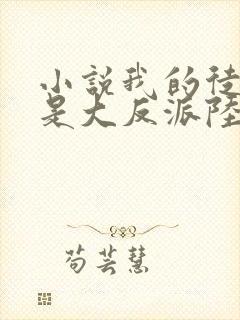 小說我的徒
是大反派陸
苟芸慧